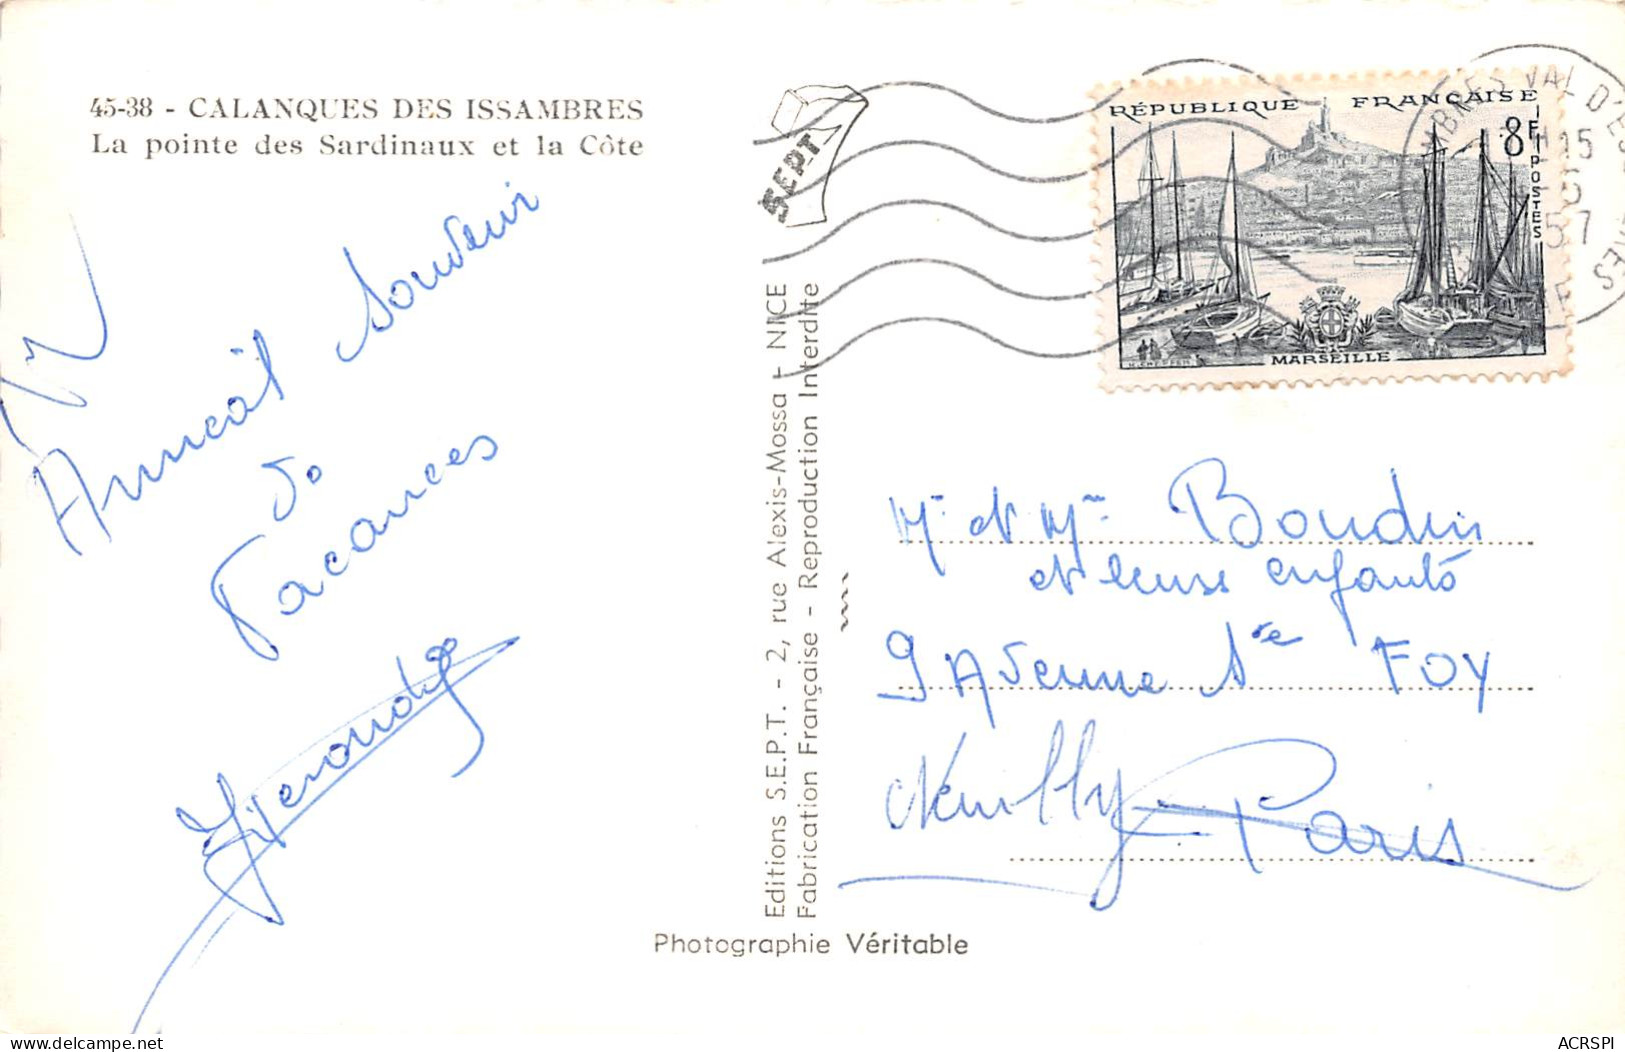 45-38 - CALANQUES DES ISSAMBRES
La pointe des Sardinaux et la Côte
Amical Souvenir
de
Vacances
SEPT
Editions S.E.P.T. - 2, rue Alexis-Mossa - NICE
Fabrication Française - Reproduction Interdite
Photographie Véritable
RÉPUBLIQUE FRANÇAISE
8F
POSTES
MARSEILLE
VAL D'ES
15
5
57
Mr et Mme Boudin
et leurs enfants
9 Avenue Ste FOY
Neuilly Paris
ACRSPI